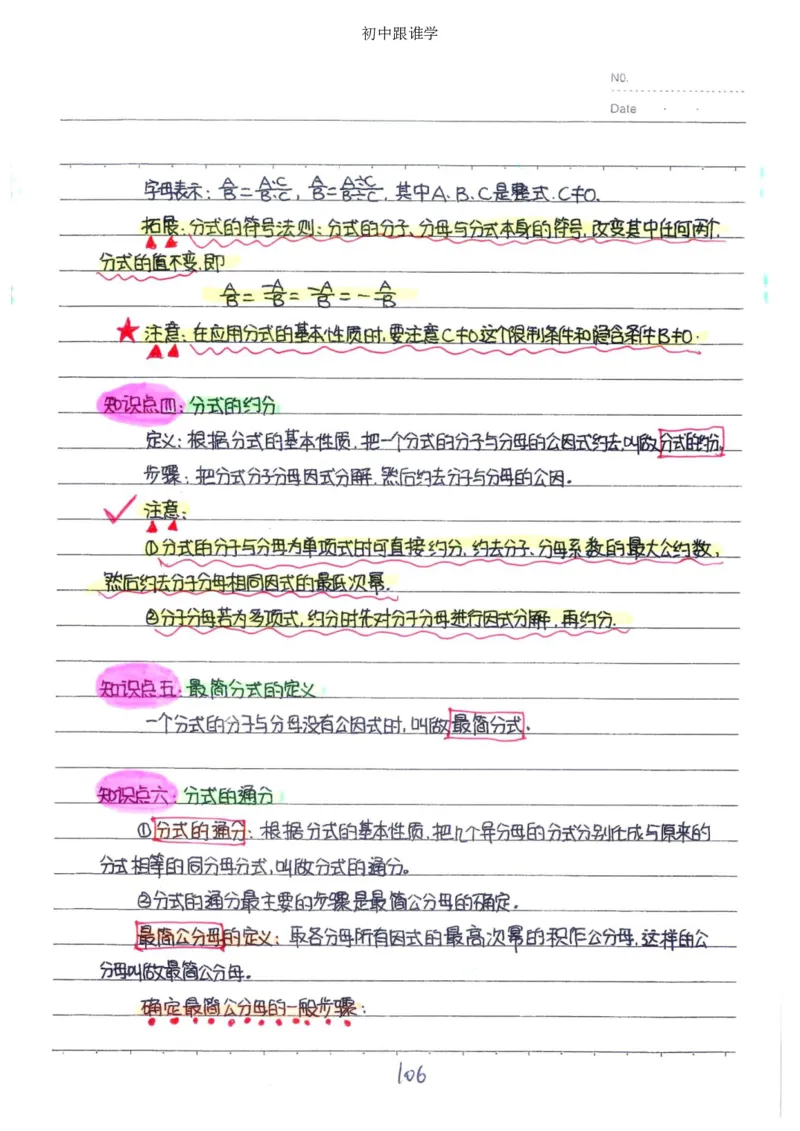 初中跟谁学
NO.
Date · ·
字母表示: A/B = A·C/B·C, A/B = A÷C/B÷C, 其中A、B、C是整式,C≠0.
拓展:分式的符号法则:分式的分子、分母与分式本身的符号,改变其中任何两个,
分式的值不变,即
A/B = -A/-B = -A/B = - A/-B
★ 注意:在应用分式的基本性质时,要注意C≠0这个限制条件和隐含条件B≠0.
知识点四:分式的约分
定义:根据分式的基本性质,把一个分式的分子与分母的公因式约去,叫做分式的约分.
步骤:把分式分子分母因式分解,然后约去分子与分母的公因。
✓ 注意:
①分式的分子与分母为单项式时可直接约分,约去分子、分母系数的最大公约数,
然后约去分子分母相同因式的最低次幂.
②分子分母若为多项式,约分时先对分子分母进行因式分解,再约分.
知识点五:最简分式的定义
一个分式的分子与分母没有公因式时,叫做最简分式.
知识点六:分式的通分
①分式的通分:根据分式的基本性质,把几个异分母的分式分别化成与原来的
分式相等的同分母分式,叫做分式的通分。
②分式的通分最主要的步骤是最简公分母的确定.
最简公分母的定义:取各分母所有因式的最高次幂的积作公分母,这样的公
分母叫做最简公分母.
确定最简公分母的一般步骤:
106